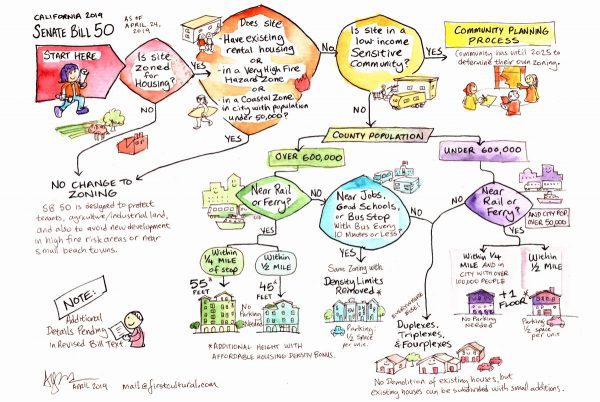 CALIFORNIA 2019
SENATE BILL 50
AS OF
APRIL 24,
2019
START HERE
Is site
zoned
for
Housing?
YES
NO
Does site
- Have existing
rental housing
OR
- in a Very High Fire
Hazard Zone
OR
- in a Coastal Zone
in city with population
under 50,000?
No
YES
Is site in a
low income
Sensitive
Community?
YES
NO
COMMUNITY PLANNING
PROCESS
Community has until 2025 to
determine their own zoning.
NO CHANGE TO
ZONING
SB 50 is designed to protect
tenants, agriculture/industrial land,
and also to avoid new development
in high fire risk areas or near
small beach towns.
COUNTY POPULATION
OVER 600,000
UNDER 600,000
Near Rail
or Ferry?
NO
YES
Near Jobs,
Good Schools,
or Bus Stop
With Bus Every
10 Minutes or Less?
NO
YES
Near
Rail or
Ferry?
NO
AND CITY POP.
over 50,000
YES
Within 1/4
MILE
of stop
Within
1/2 MILE
55*
FEET
45*
FEET
No
Parking
Needed
*ADDITIONAL HEIGHT WITH
AFFORDABLE HOUSING DENSITY BONUS.
Same Zoning with
Density Limits
Removed*
Parking
1/2 Space
per unit.
EVERYWHERE
ELSE
Duplexes,
Triplexes, &
Fourplexes
No Demolition of existing houses, but
existing houses can be subdivided with small additions.
Within 1/4
MILE AND in
CITY WITH OVER
100,000 PEOPLE
Within
1/2 MILE
+1
FLOOR*
No Parking
Needed
Parking
1/2 space
per unit
NOTE:
Additional
Details Pending
in Revised Bill Text.
APRIL 2019
mail@firstcultural.com